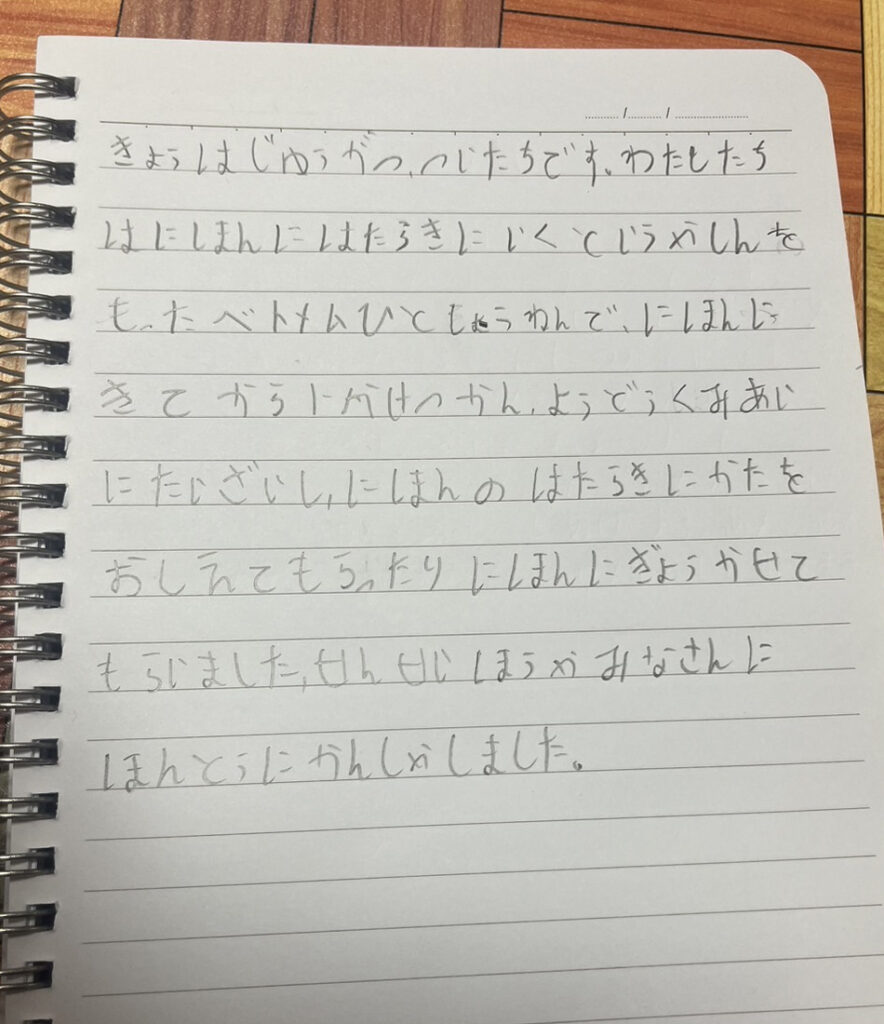 きょうはじゅうがつ、ついたちです。わたしたち
はにほんにはたらきにいくというやしんを
もったベトメムひとしょうねんで、にほんに
きてからにかげつかん、ようどうくみあい
にたいざいし、にほんのはたらきにかたを
おしえてもらったりにほんにぎょうかせて
もらいました、せんせいほうやみなさんに
ほんとうにかんしゃしました。